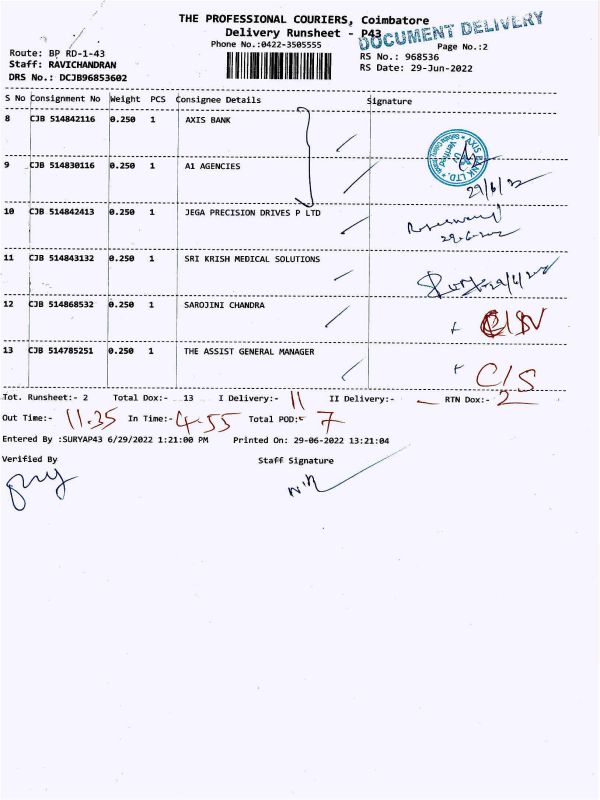 THE PROFESSIONAL COURIERS, Coimbatore
Delivery Runsheet - P43
DOCUMENT DELIVERY
Phone No.:0422-3505555
Page No.:2
Route: BP RD-1-43
RS No.: 968536
Staff: RAVICHANDRAN
RS Date: 29-Jun-2022
DRS No.: DCJB96853602
S No Consignment No Weight PCS Consignee Details Signature
8 CJB 514842116 0.250 1 AXIS BANK
AXIS BANK LTD.
Verified
29/6/22
9 CJB 514830116 0.250 1 A1 AGENCIES
10 CJB 514842413 0.250 1 JEGA PRECISION DRIVES P LTD
11 CJB 514843132 0.250 1 SRI KRISH MEDICAL SOLUTIONS
12 CJB 514868532 0.250 1 SAROJINI CHANDRA
13 CJB 514785251 0.250 1 THE ASSIST GENERAL MANAGER
C/S
Tot. Runsheet:- 2 Total Dox:- 13 I Delivery:- 11 II Delivery:- — RTN Dox:- 2
Out Time:- 11.35 In Time:- 4.55 Total POD:- 7
Entered By :SURYAP43 6/29/2022 1:21:00 PM Printed On: 29-06-2022 13:21:04
Verified By Staff Signature